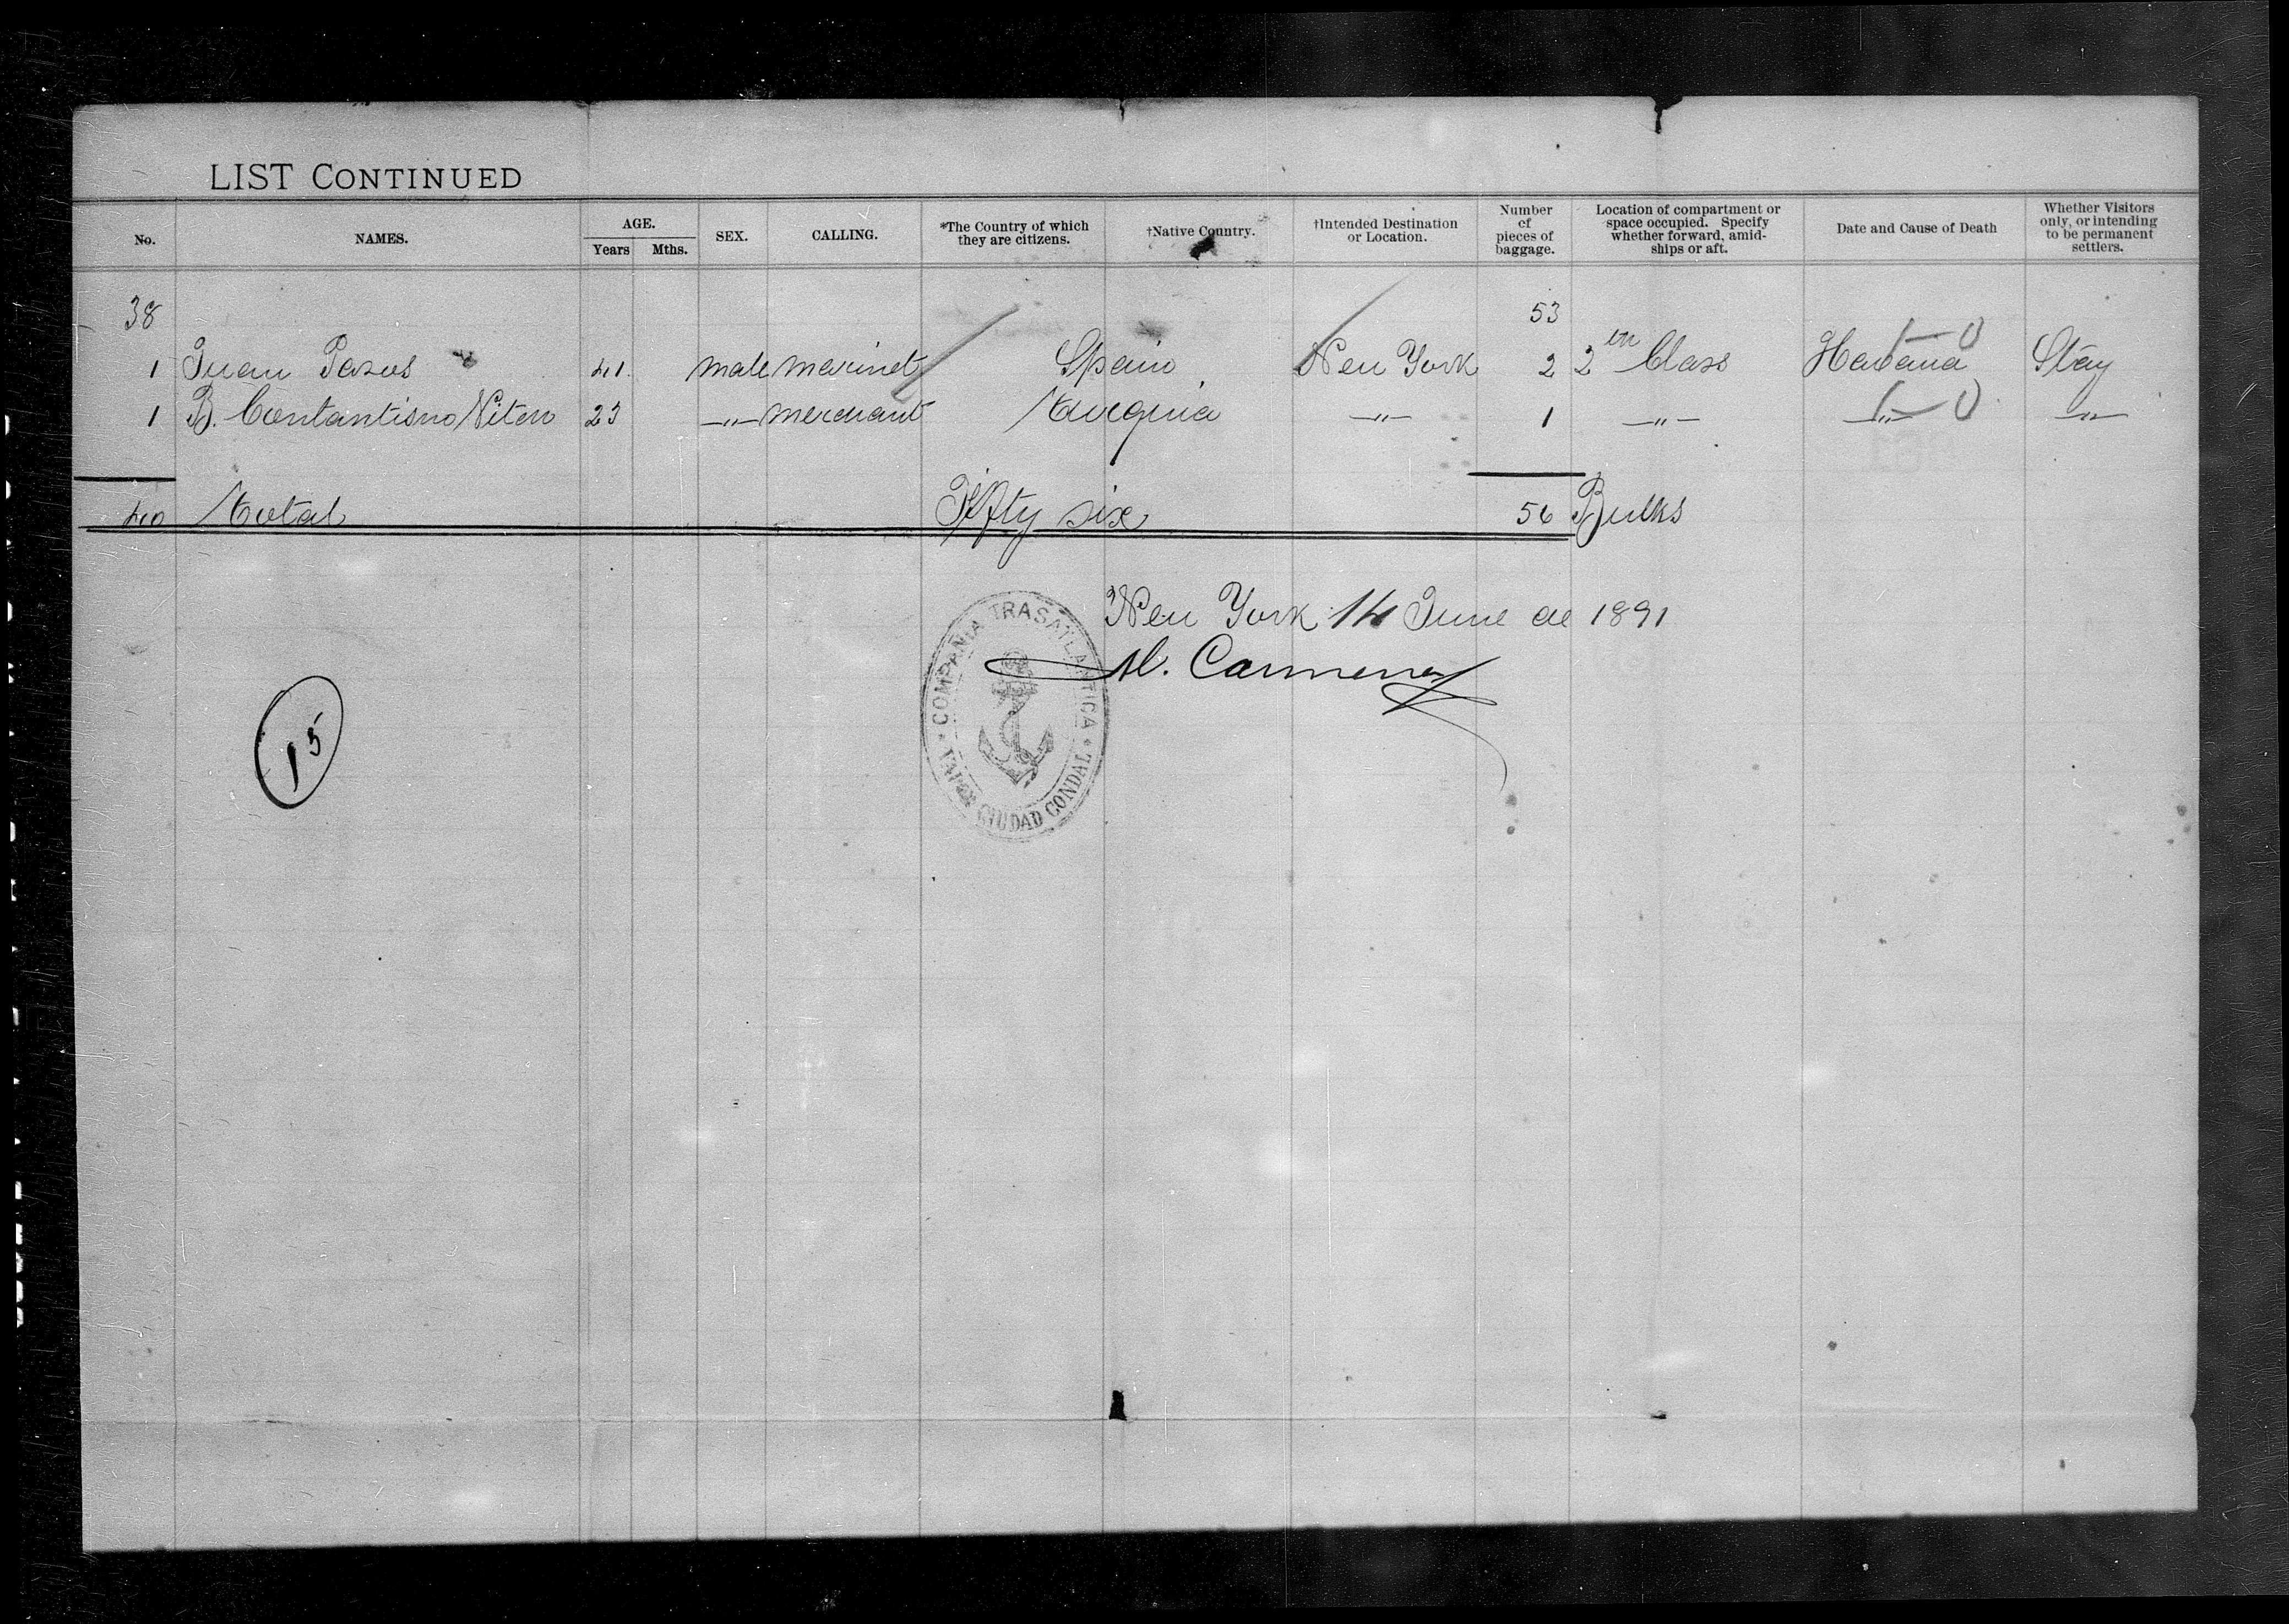 LIST CONTINUED
No. NAMES. AGE. Years Mths. SEX. CALLING. *The Country of which they are citizens. †Native Country. †Intended Destination or Location. Number of pieces of baggage. Location of compartment or space occupied. Specify whether forward, amidships or aft. Date and Cause of Death Whether Visitors only, or intending to be permanent settlers.
38 53
1 Juan Pazos 41 male marinet Spain New York 2 2 Class Habana Stay
1 B. 23 —"— merchant —"— 1 —"— —"— —"—
40 Total Fifty six 56 Bulks
New York 14 June de 1891
M. Carmona
COMPAÑIA TRASATLANTICA
VAPOR CIUDAD CONDAL
15